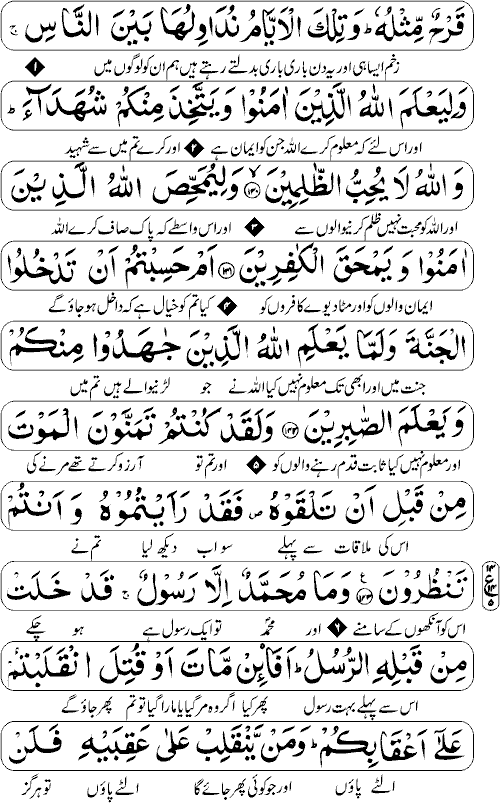 قَرْحٌ مِّثْلُهٗ ؕ وَتِلْكَ الْاَيَّامُ نُدَاوِلُهَا بَيْنَ النَّاسِ ۚ
زخم ایسا ہی اور یہ دن باری باری بدلتے رہتے ہیں ہم ان کو لوگوں میں ۱
وَلِيَعْلَمَ اللّٰهُ الَّذِيْنَ اٰمَنُوْا وَيَتَّخِذَ مِنْكُمْ شُهَدَآءَ ؕ
اور اس لئے کہ معلوم کرے اللہ جن کو ایمان ہے ۲ اور کرے تم میں سے شہید
وَاللّٰهُ لَا يُحِبُّ الظّٰلِمِيْنَ ۙ﴿۱۴۰﴾ وَلِيُمَحِّصَ اللّٰهُ الَّذِيْنَ
اور اللہ کو محبت نہیں ظلم کرنیوالوں سے ۳ اور اس واسطے کہ پاک صاف کرے اللہ
اٰمَنُوْا وَيَمْحَقَ الْكٰفِرِيْنَ ﴿۱۴۱﴾ اَمْ حَسِبْتُمْ اَنْ تَدْخُلُوا
ایمان والوں کو اور مٹا دیوے کافروں کو ۴ کیا تم کو خیال ہے کہ داخل ہو جاؤ گے
الْجَنَّةَ وَلَمَّا يَعْلَمِ اللّٰهُ الَّذِيْنَ جٰهَدُوْا مِنْكُمْ
جنت میں اور ابھی تک معلوم نہیں کیا اللہ نے جو لڑنیوالے ہیں تم میں
وَيَعْلَمَ الصّٰبِرِيْنَ ﴿۱۴۲﴾ وَلَقَدْ كُنْتُمْ تَمَنَّوْنَ الْمَوْتَ
اور معلوم نہیں کیا ثابت قدم رہنے والوں کو ۵ اور تم تو آرزو کرتے تھے مرنے کی
مِنْ قَبْلِ اَنْ تَلْقَوْهُ ۪ فَقَدْ رَاَيْتُمُوْهُ وَاَنْتُمْ
اس کی ملاقات سے پہلے سو اب دیکھ لیا تم نے
تَنْظُرُوْنَ ﴿۱۴۳﴾ وَمَا مُحَمَّدٌ اِلَّا رَسُوْلٌ ۚ قَدْ خَلَتْ
اس کو آنکھوں کے سامنے ۶ اور محمدؐ تو ایک رسول ہے ہو چکے
مِنْ قَبْلِهِ الرُّسُلُ ؕ اَفَا۟ئِنْ مَّاتَ اَوْ قُتِلَ انْقَلَبْتُمْ
اس سے پہلے بہت رسول پھر کیا اگر وہ مرگیا یا مارا گیا تو تم پھر جاؤ گے
عَلٰٓى اَعْقَابِكُمْ ؕ وَمَنْ يَّنْقَلِبْ عَلٰى عَقِبَيْهِ فَلَنْ
الٹے پاؤں اور جو کوئی پھر جائے گا الٹے پاؤں تو ہرگز